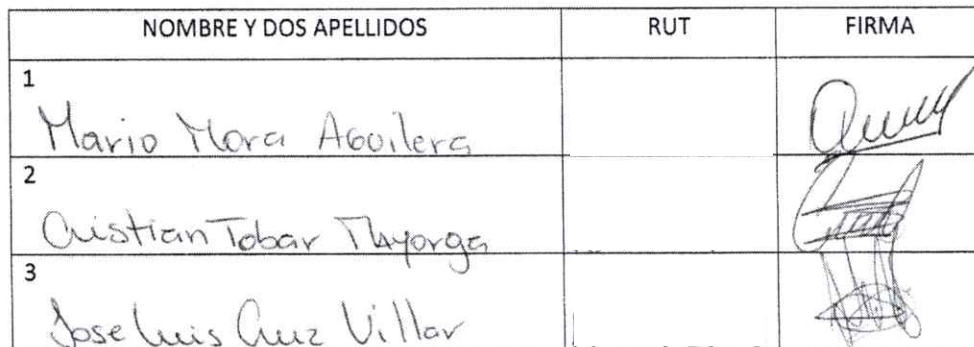 NOMBRE Y DOS APELLIDOS RUT FIRMA
1
Mario Mora Aguilera
2
Cristian Tobar Mayorga
3
Jose Luis Cruz Villar